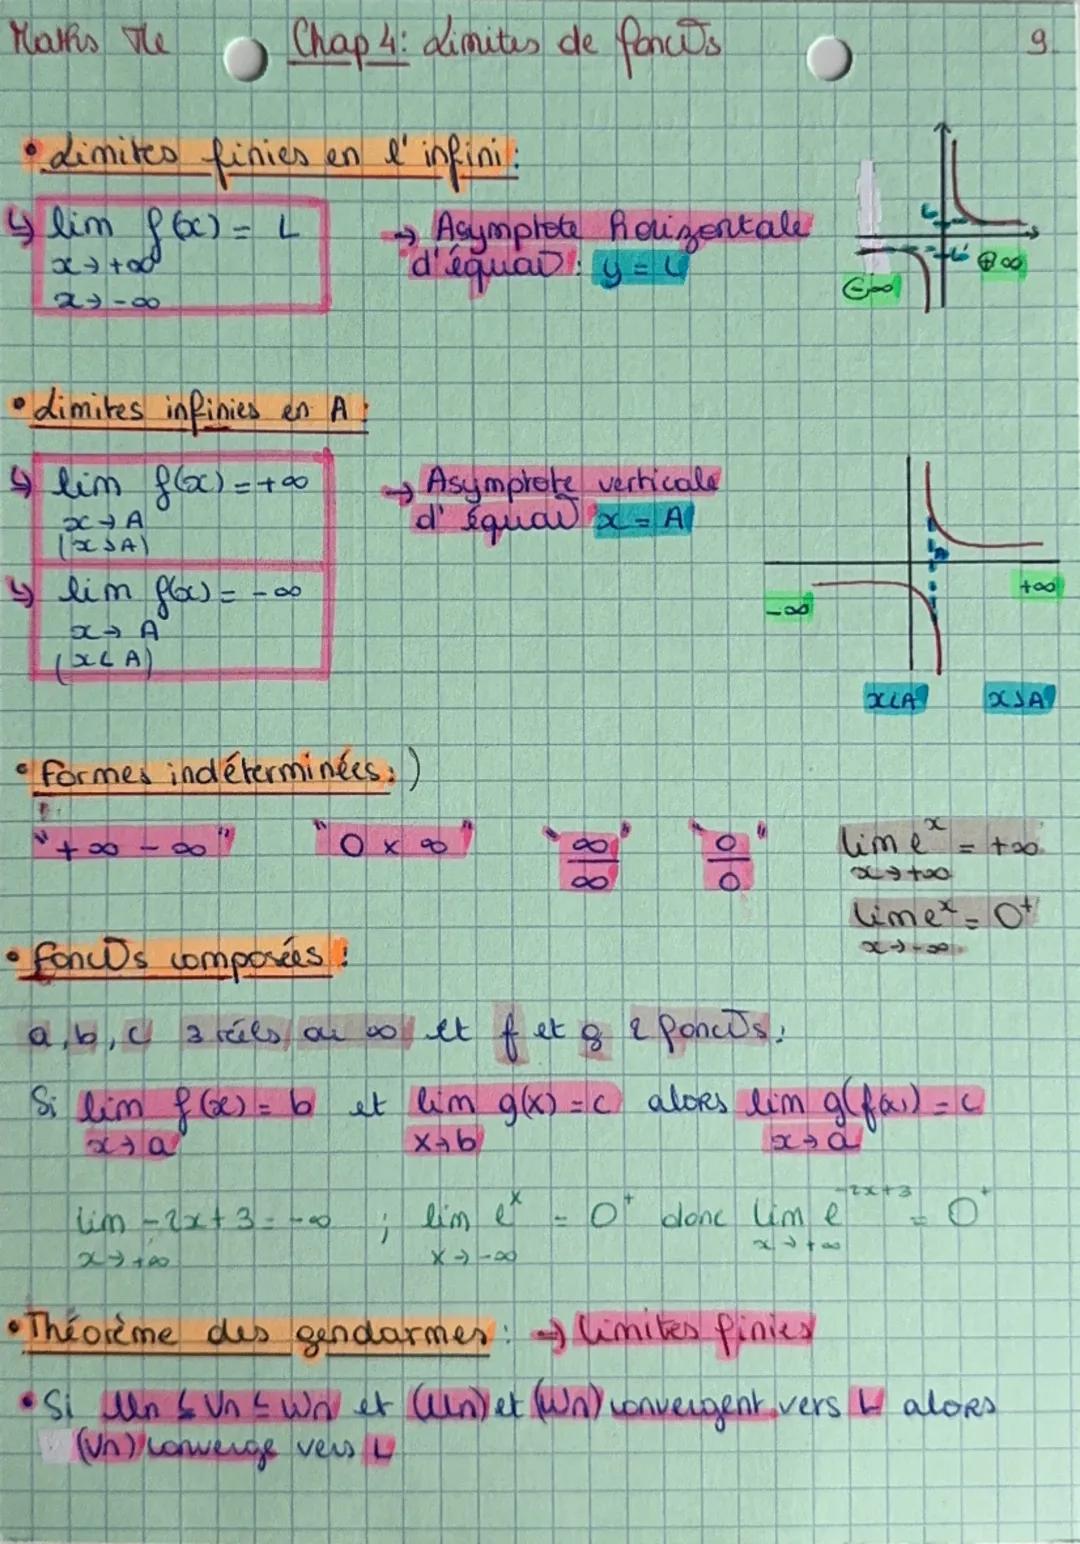 Maths Tle Chap 4: Limites de fonct°s 9
• Limites finies en l'infini :
↳ lim f(x) = L → Asymptote horizontale
x→+∞ d'équat° : y = L
x→-∞
L
L'
⊕∞
⊖∞
• Limites infinies en A :
↳ lim f(x) = +∞ → Asymptote verticale
x→A d'équat° x = A
(x>A)
↳ lim f(x) = -∞
x→A
(x<A)
A
-∞ +∞
x<A x>A
• Formes indéterminées :)
"+∞ -∞" "0 × ∞" "∞/∞" "0/0"
lim e^x = +∞
x→+∞
lim e^x = 0⁺
x→-∞
• Fonct°s composées :
a, b, c 3 réels ou ∞ et f et g 2 fonct°s :
Si lim f(x) = b et lim g(X) = c alors lim g(f(x)) = c
x→a X→b x→a
lim -2x+3 = -∞ ; lim e^X = 0⁺ donc lim e^-2x+3 = 0⁺
x→+∞ X→-∞ x→+∞
• Théorème des gendarmes : → limites finies
• Si Un ≤ Vn ≤ Wn et (Un) et (Wn) convergent vers L alors
(Vn) converge vers L